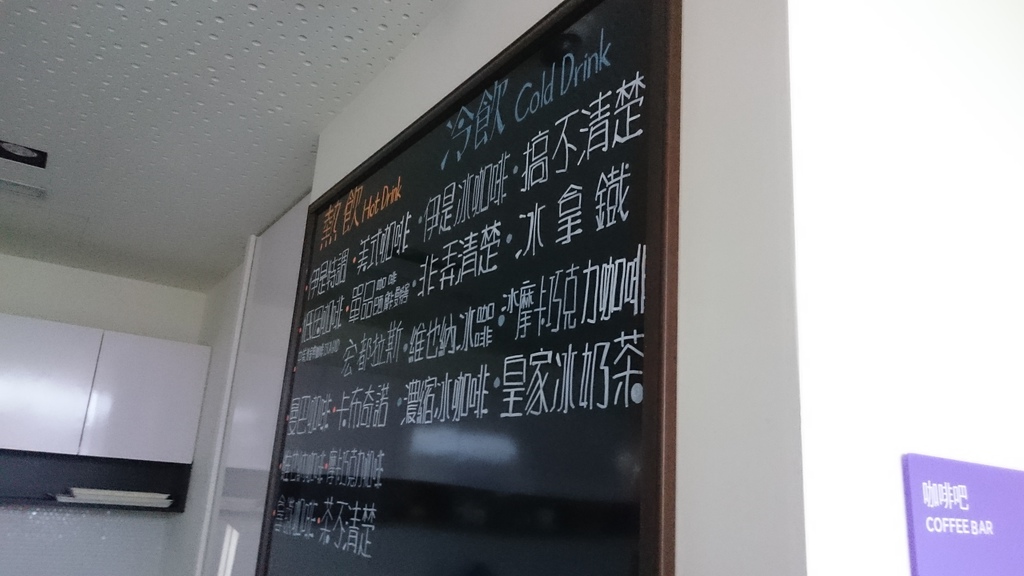 熱飲 Hot Drink
·伊是特調 ·美式咖啡
咖啡 ·單品咖啡
宏都拉斯
曼巴咖啡 ·卡布奇諾
·摩卡巧克力咖啡
拿鐵咖啡 ·茶不清楚
冷飲 Cold Drink
·伊是冰咖啡 ·搞不清楚
·非弄清楚 ·冰拿鐵
·維也納冰咖啡 ·冰摩卡巧克力咖啡
·濃縮冰咖啡 ·皇家冰奶茶
咖啡吧
COFFEE BAR